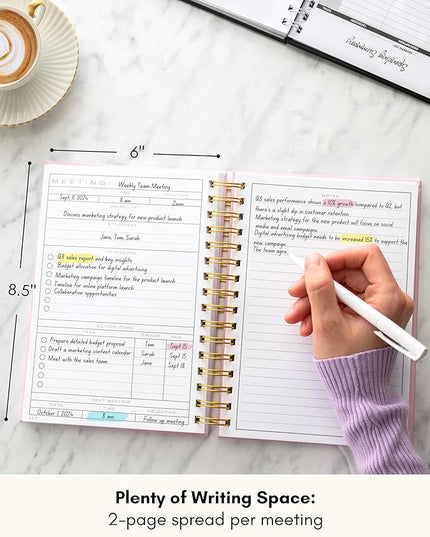 Spending Summary
6"
8.5"
MEETING Weekly Team Meeting
DATE TIME LOCATION
Sept 11, 2024 8 am Zoom
Discuss marketing strategy for new product launch
ATTENDEES
Jane, Tom, Sarah
Q3 sales report and key insights
Budget allocation for digital advertising
Marketing campaign timeline for the product
Timeline for online platform launch
Collaboration opportunities
ACTION ITEMS
TASK OWNER DUE
Prepare detailed budget proposal Tom Sept 15
Draft a marketing content calendar Sarah Sept 15
Meet with the sales team Jane Sept 18
NEXT MEETING
DATE TIME OBJECTIVE
October 1, 2024 8 am Follow up meeting
NOTES
Q3 sales performance shows a 10% growth compared to Q2, but
there's a slight dip in customer retention.
Marketing strategy for the new product will focus on social
media and email campaigns.
Digital advertising budget needs to be increased 15% to support the
new campaign.
The team agre
Plenty of Writing Space:
2-page spread per meeting